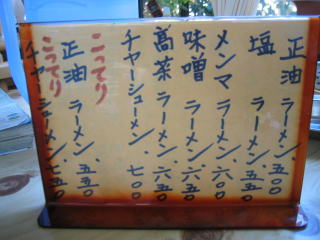 正油 ラーメン、五〇〇
塩 ラーメン、五五〇
メンマ ラーメン、六五〇
味噌 ラーメン、六五〇
高菜 ラーメン、六五〇
チャーシューメン、七〇〇
こってり
正油 ラーメン、五五〇
こってり
チャーシューメン、七五〇